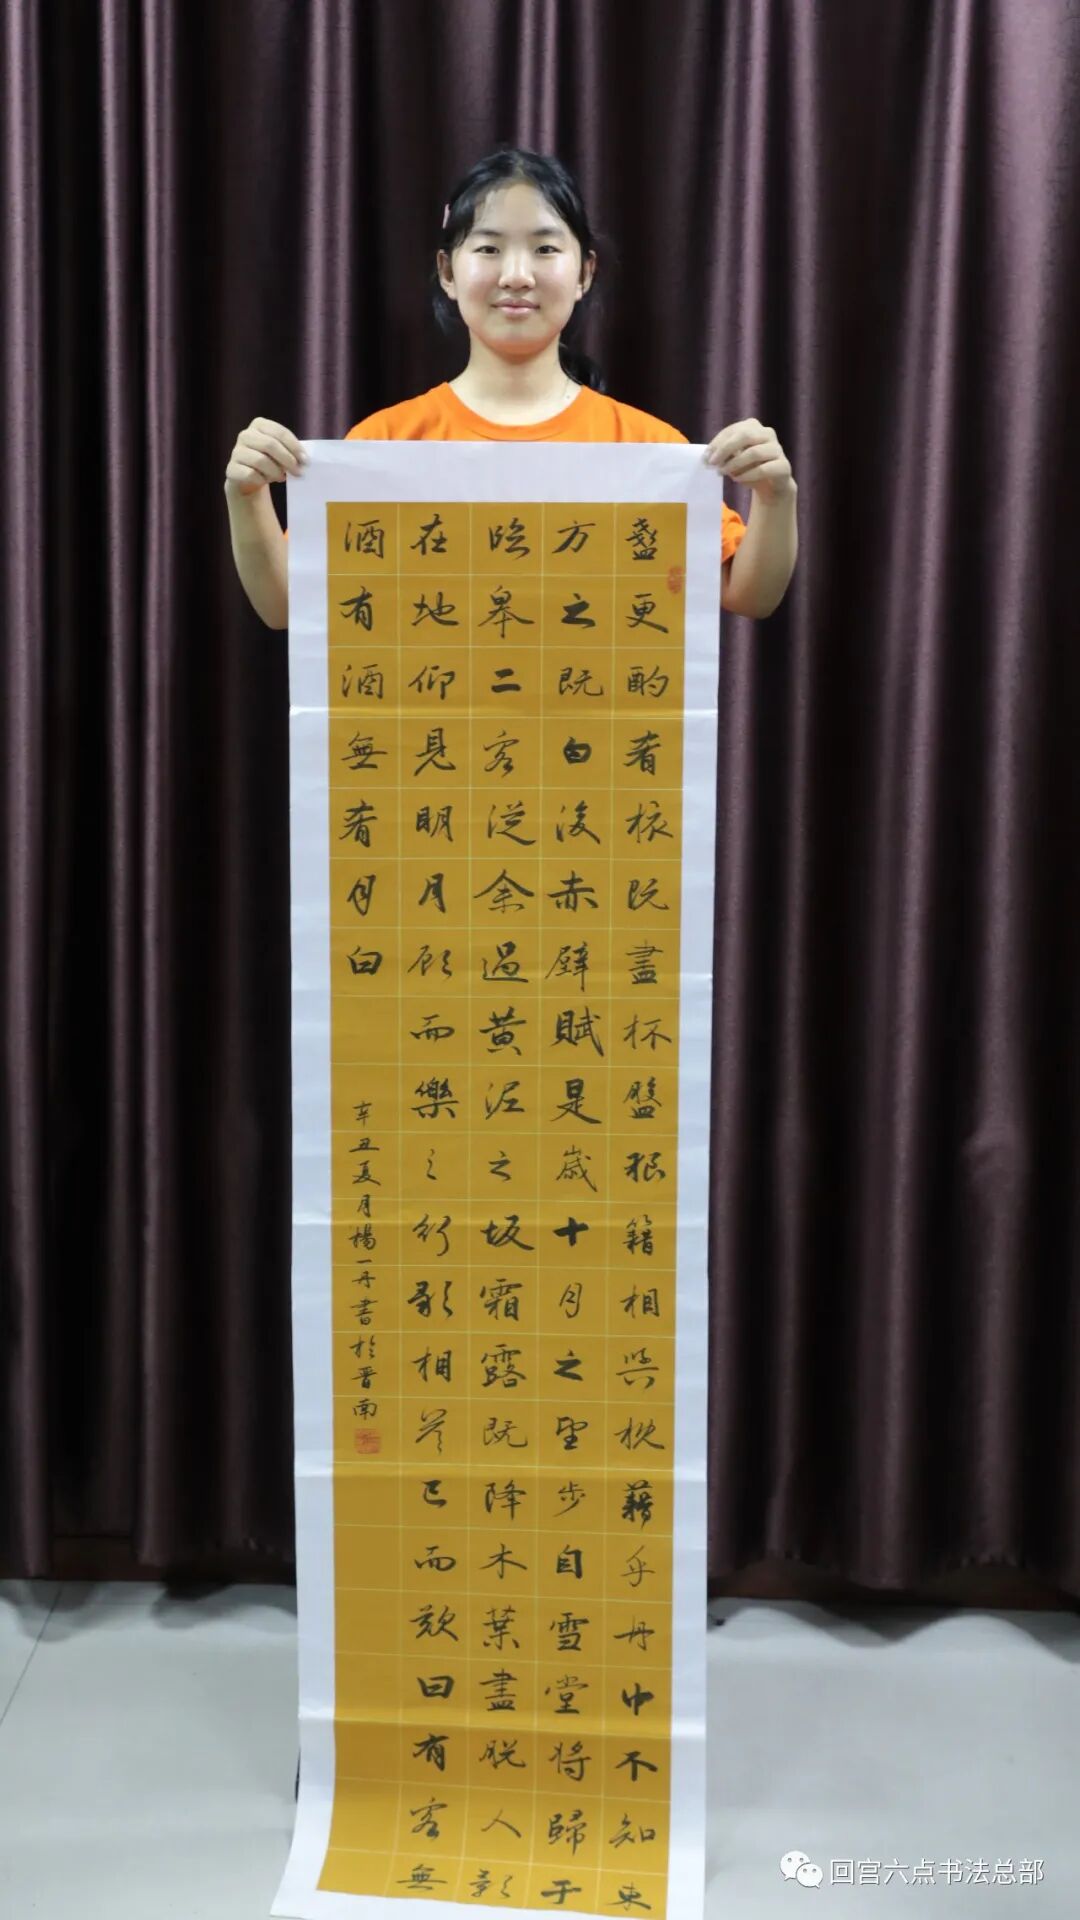 盞更酌肴核既盡杯盤狼籍相與枕藉乎舟中不知東
方之既白後赤壁賦是歲十月之望步自雪堂將歸于
臨皋二客從余過黃泥之坂霜露既降木葉盡脫人影
在地仰見明月顧而樂之行歌相答已而歎曰有客無
酒有酒無肴月白
辛丑夏月楊一丹書於晋南
回宫六点书法总部